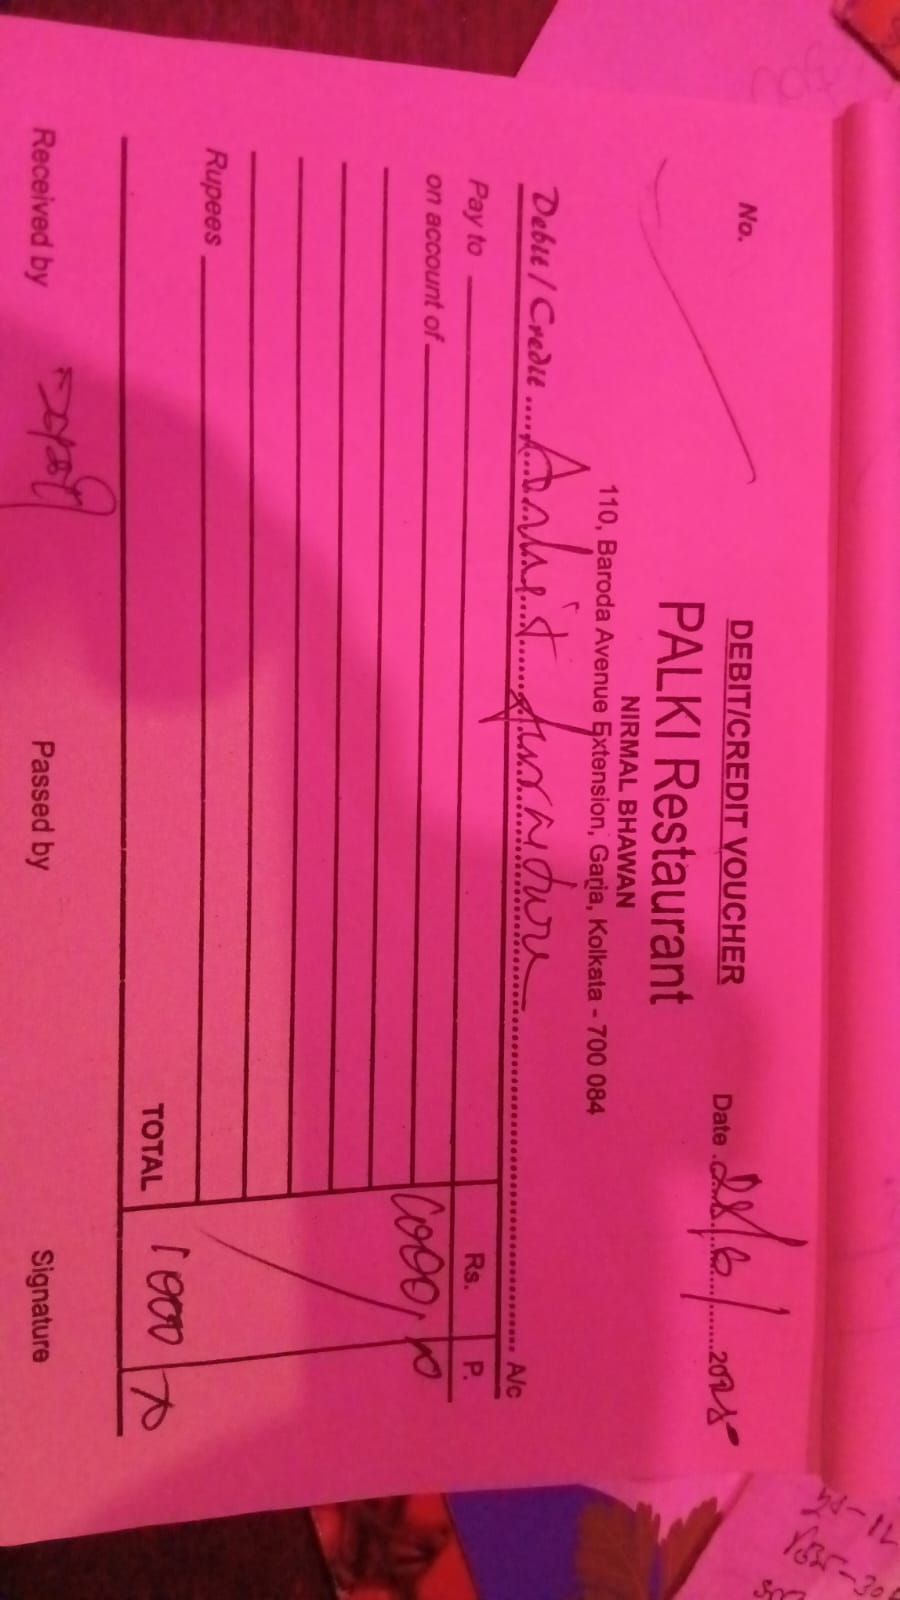 No.
DEBIT/CREDIT VOUCHER
PALKI Restaurant
NIRMAL BHAWAN
110, Baroda Avenue Extension, Garia, Kolkata - 700 084
Date 28/6/2025
Debit / Credit A/c
Pay to Rs. P.
on account of 1000,
Rupees
TOTAL 1000
Received by Passed by Signature